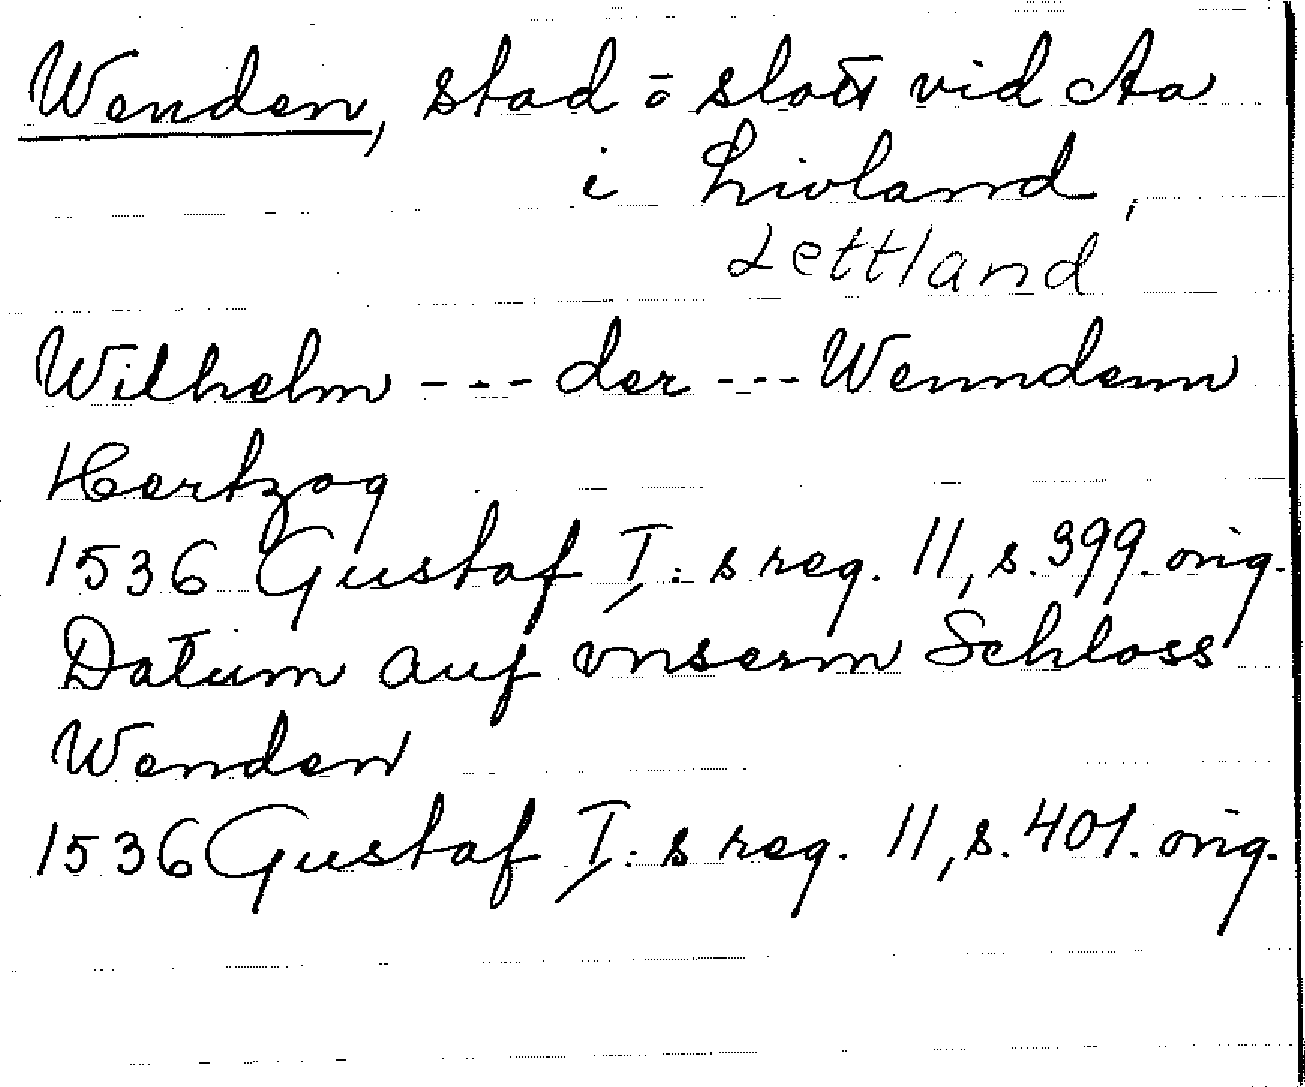 Wenden, stad o slott vid Aa
i Livland,
Lettland
Wilhelm --- der --- Wenndenn
Hertzog
1536 Gustaf I:s reg. 11, s. 399. orig.
Datum auf vnserm Schloss
Wenden
1536 Gustaf I:s reg. 11, s. 401. orig.